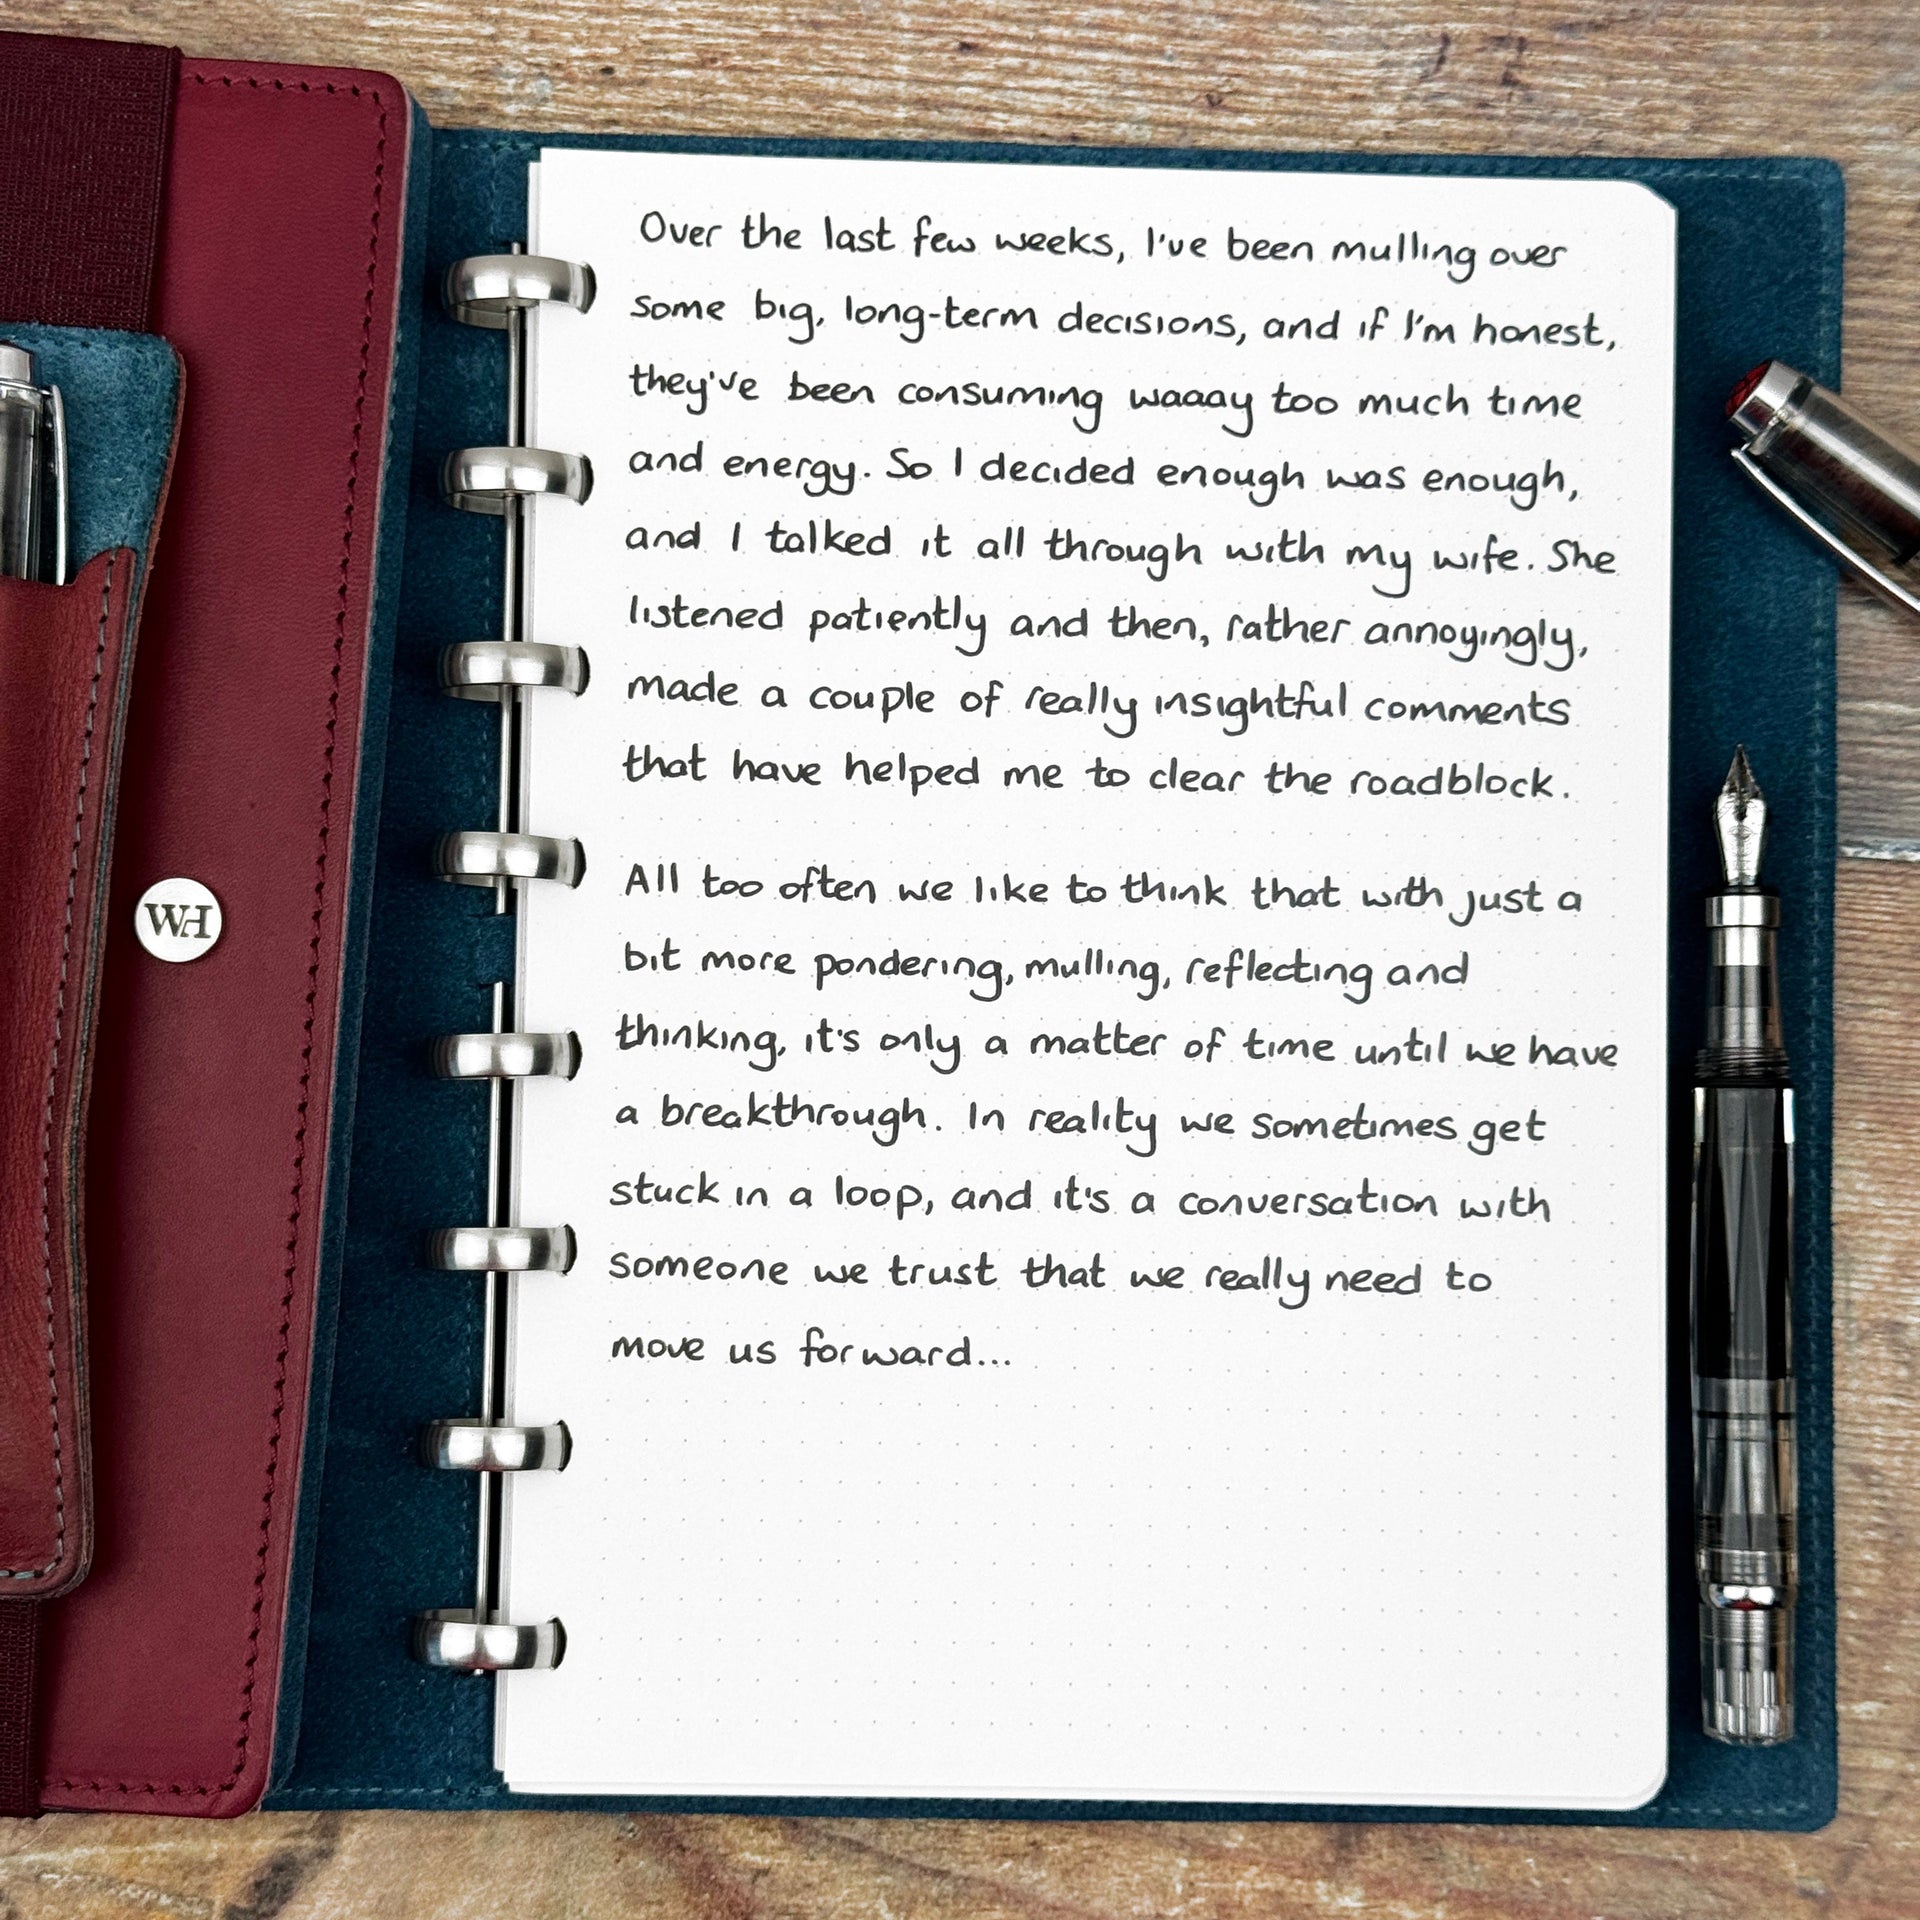 WH
Over the last few weeks, I've been mulling over
some big, long-term decisions, and if I'm honest,
they've been consuming waaay too much time
and energy. So I decided enough was enough,
and I talked it all through with my wife. She
listened patiently and then, rather annoyingly,
made a couple of really insightful comments
that have helped me to clear the roadblock.
All too often we like to think that with just a
bit more pondering, mulling, reflecting and
thinking, it's only a matter of time until we have
a breakthrough. In reality we sometimes get
stuck in a loop, and it's a conversation with
someone we trust that we really need to
move us forward...